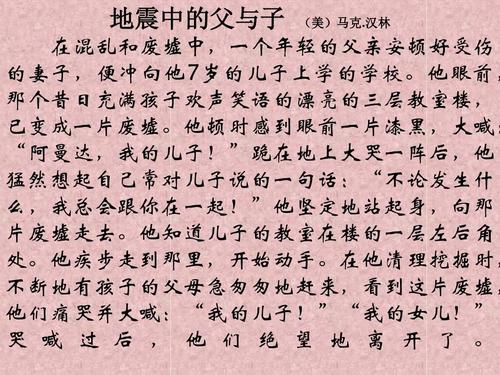 地震中的父与子 （美）马克.汉林
在混乱和废墟中，一个年轻的父亲安顿好受伤
的妻子，便冲向他7岁的儿子上学的学校。他眼前，
那个昔日充满孩子欢声笑语的漂亮的三层教室楼，
已变成一片废墟。他顿时感到眼前一片漆黑，大喊：
“阿曼达，我的儿子！”跪在地上大哭一阵后，他
猛然想起自己常对儿子说的一句话：“不论发生什
么，我总会跟你在一起！”他坚定地站起身，向那
片废墟走去。他知道儿子的教室在楼的一层左后角
处。他疾步走到那里，开始动手。在他清理挖掘时，
不断地有孩子的父母急匆匆地赶来，看到这片废墟，
他们痛哭并大喊：“我的儿子！”“我的女儿！”
哭喊过后，他们绝望地离开了。